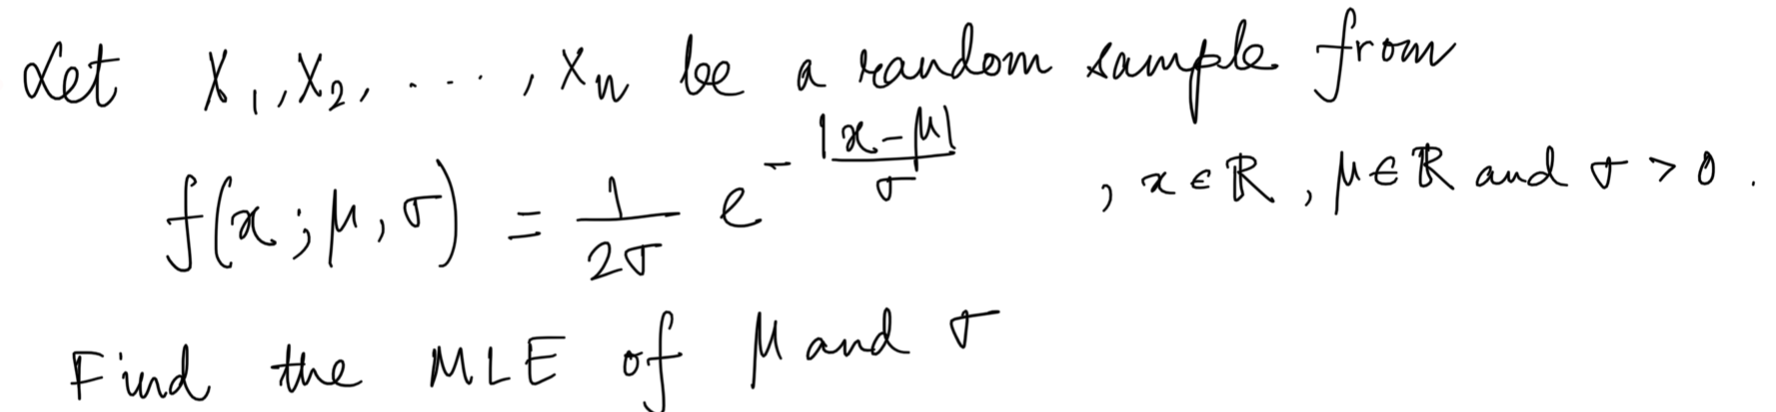 Let X₁, X₂, ...., Xₙ be a random sample from
f(x; μ, σ) = 1/(2σ) e^(-|x-μ|/σ) , x ∈ ℝ, μ ∈ ℝ and σ > 0.
Find the MLE of μ and σ